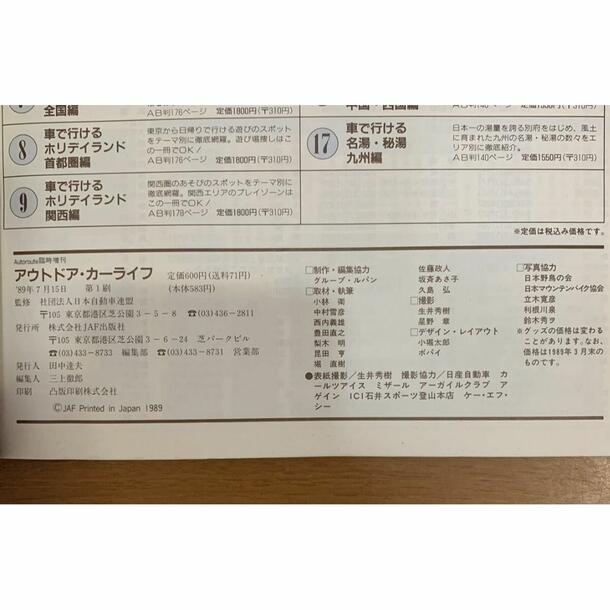 全国編
A日判176ページ 定価1800円(〒310円)
8
車で行ける
ホリデイランド
首都圏編
東京から日帰りで行ける遊びのスポット
をテーマ別に徹底網羅。遊び場捜しはこ
の一冊でOK!
A日判176ページ 定価1800円(〒310円)
9
車で行ける
ホリデイランド
関西編
関西圏のあそびのスポットをテーマ別に
徹底網羅。関西エリアのプレイゾーンは
この一冊でOK!
A日判178ページ 定価1800円(〒310円)
中国・四国編
17
車で行ける
名湯・秘湯
九州編
日本一の湯量を誇る別府をはじめ、風土
に育まれた九州の名湯・秘湯の数々をエ
リア別に徹底紹介。
A日判140ページ 定価1550円(〒310円)
※定価は税込み価格です。
Autoroute臨時増刊
アウトドア・カーライフ 定価600円(送料71円)
'89年7月15日 第1刷 (本体583円)
監修 社団法人日本自動車連盟
〒105 東京都港区芝公園3-5-8 ☎(03)436-2811
発行所 株式会社JAF出版社
〒105 東京都港区芝公園3-6-24 芝パークビル
☎(03)433-8733 編集部 ☎(03)433-8731 営業部
発行人 田中達夫
編集人 三上徹郎
印刷 凸版印刷株式会社
©JAF Printed in Japan 1989
□制作・編集協力
グループ・ルパン
□取材・執筆
小林 衛
中村雪彦
西内義雄
豊田直之
梨木 明
昆田 亨
堀 直樹
佐藤政人
坂斉あさ子
久島 弘
□撮影
生井秀樹
星野 章
□デザイン・レイアウト
小堀太郎
ポパイ
□写真協力
日本野鳥の会
日本マウンテンバイク協会
立木寛彦
利根川泉
鈴木秀ヲ
※グッズの価格は変わる
ことがあります。なお、
価格は1989年3月末の
ものです。
●表紙撮影/生井秀樹 撮影協力/日産自動車 カ
ールツアイス ミザール アーガイルクラブ ア
ゲイン ICI石井スポーツ登山本店 ケー・エフ・
シー